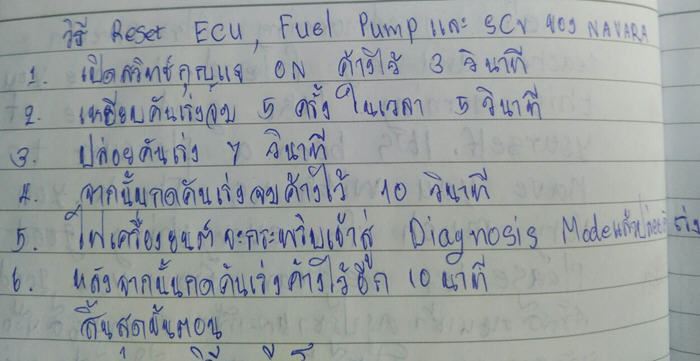 วิธี Reset ECU, Fuel Pump และ SCV ของ NAVARA
1. เปิดสวิทช์กุญแจ ON ค้างไว้ 3 วินาที
2. เหยียบคันเร่งจบ 5 ครั้ง ในเวลา 5 วินาที
3. ปล่อยคันเร่ง 7 วินาที
4. จากนั้นกดคันเร่งจบค้างไว้ 10 วินาที
5. ไฟเครื่องยนต์จะกระพริบเข้าสู่ Diagnosis Mode แล้วปล่อยคันเร่ง
6. หลังจากนั้นกดคันเร่งค้างไว้อีก 10 นาที
สิ้นสุดขั้นตอน